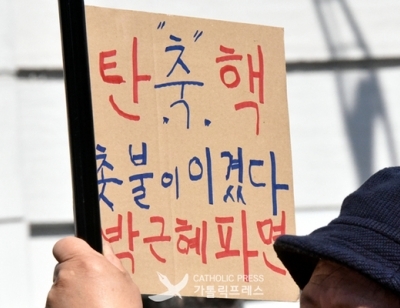 탄 "축" 핵
촛불이 이겼다
박근혜 파면
CATHOLIC PRESS
가톨릭프레스